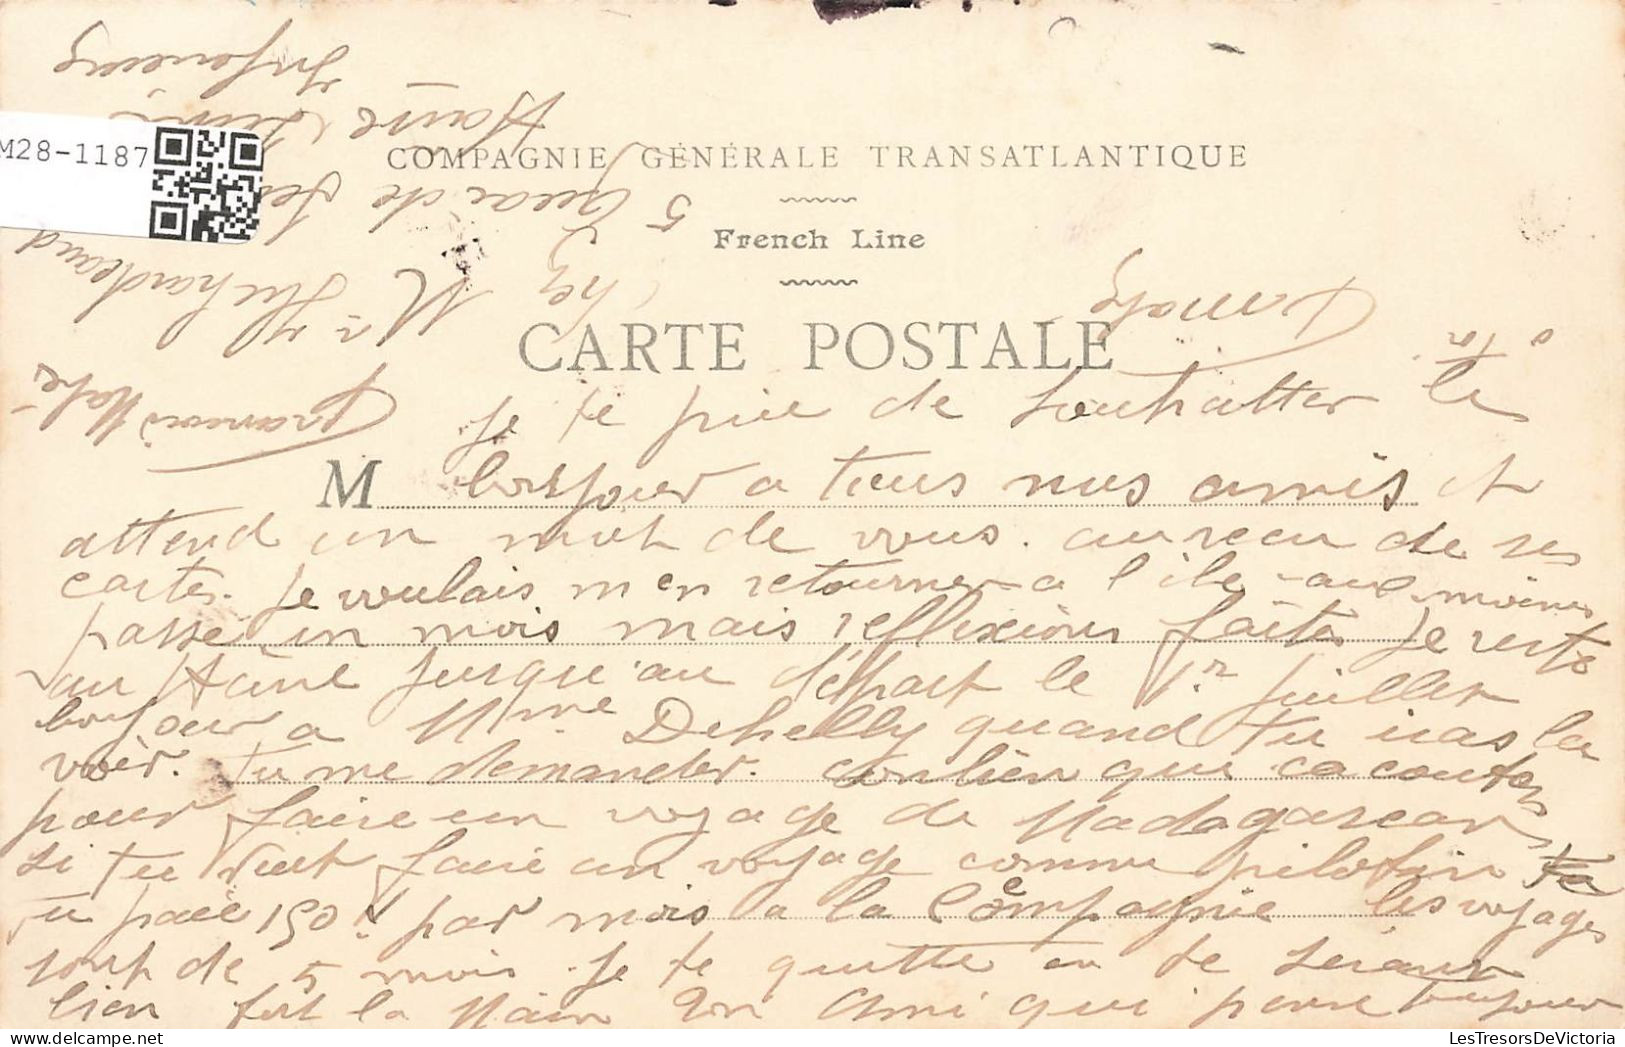 M28-1187
COMPAGNIE GÉNÉRALE TRANSATLANTIQUE
French Line
CARTE POSTALE
Je te prie de souhaitter les
M bonjour a tous nos amis et
attend un mot de vous. au recu de ses
cartes. Je voulais m'en retourner a l'île-aux-moines
passé un mois mais reflexions faites Je reste
au Havre Jusqu'au départ le 1er Juillet
bonjour a Mme Dehelly quand tu iras la
voir. tu me demander. conbien que ca coutes
pour faire un voyage de Madagascar
si tu veut faire un voyage comme pilotin
tu paie 150f par mois a la Compagnie les voyages
sont de 5 mois. Je te quitte en te sérant
bien fort la Main Ton Ami qui pense toujours
à toi
François Mahé
Chez
Mr Huchardeaud
5 Quai de
Havre
Inférieure
LesTresorsDeVictoria